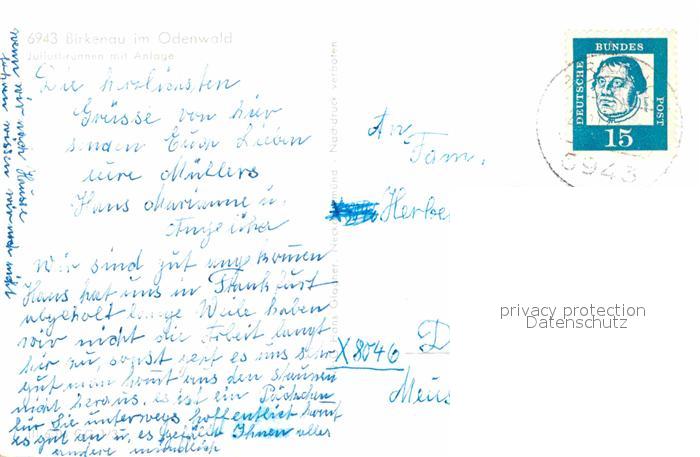 6943 Birkenau im Odenwald
Juliusbrunnen mit Anlage
Die herzlichsten
Grüsse von hier
senden Euch Lieben
eure Müllers
Hans Marianne u.
Angelika
Wir sind gut angekommen
Hans hat uns in Frankfurt
abgeholt lange Weile haben
wir nicht die Arbeit langt
hir zu, sonst geht es uns sehr
gut man komt aus den staunen
nicht heraus. es ist ein Päckchen
für Sie unterwegs hoffentlich komt
es gut an u. es gefällt Ihnen alles
andere mündlich
wenn wir nach Hause
fahren wissen wir noch nicht
Nachdruck verboten
An
Fam.
Herbe
X8046
D
Meis
DEUTSCHE
BUNDES
POST
15
6943
privacy protection
Datenschutz